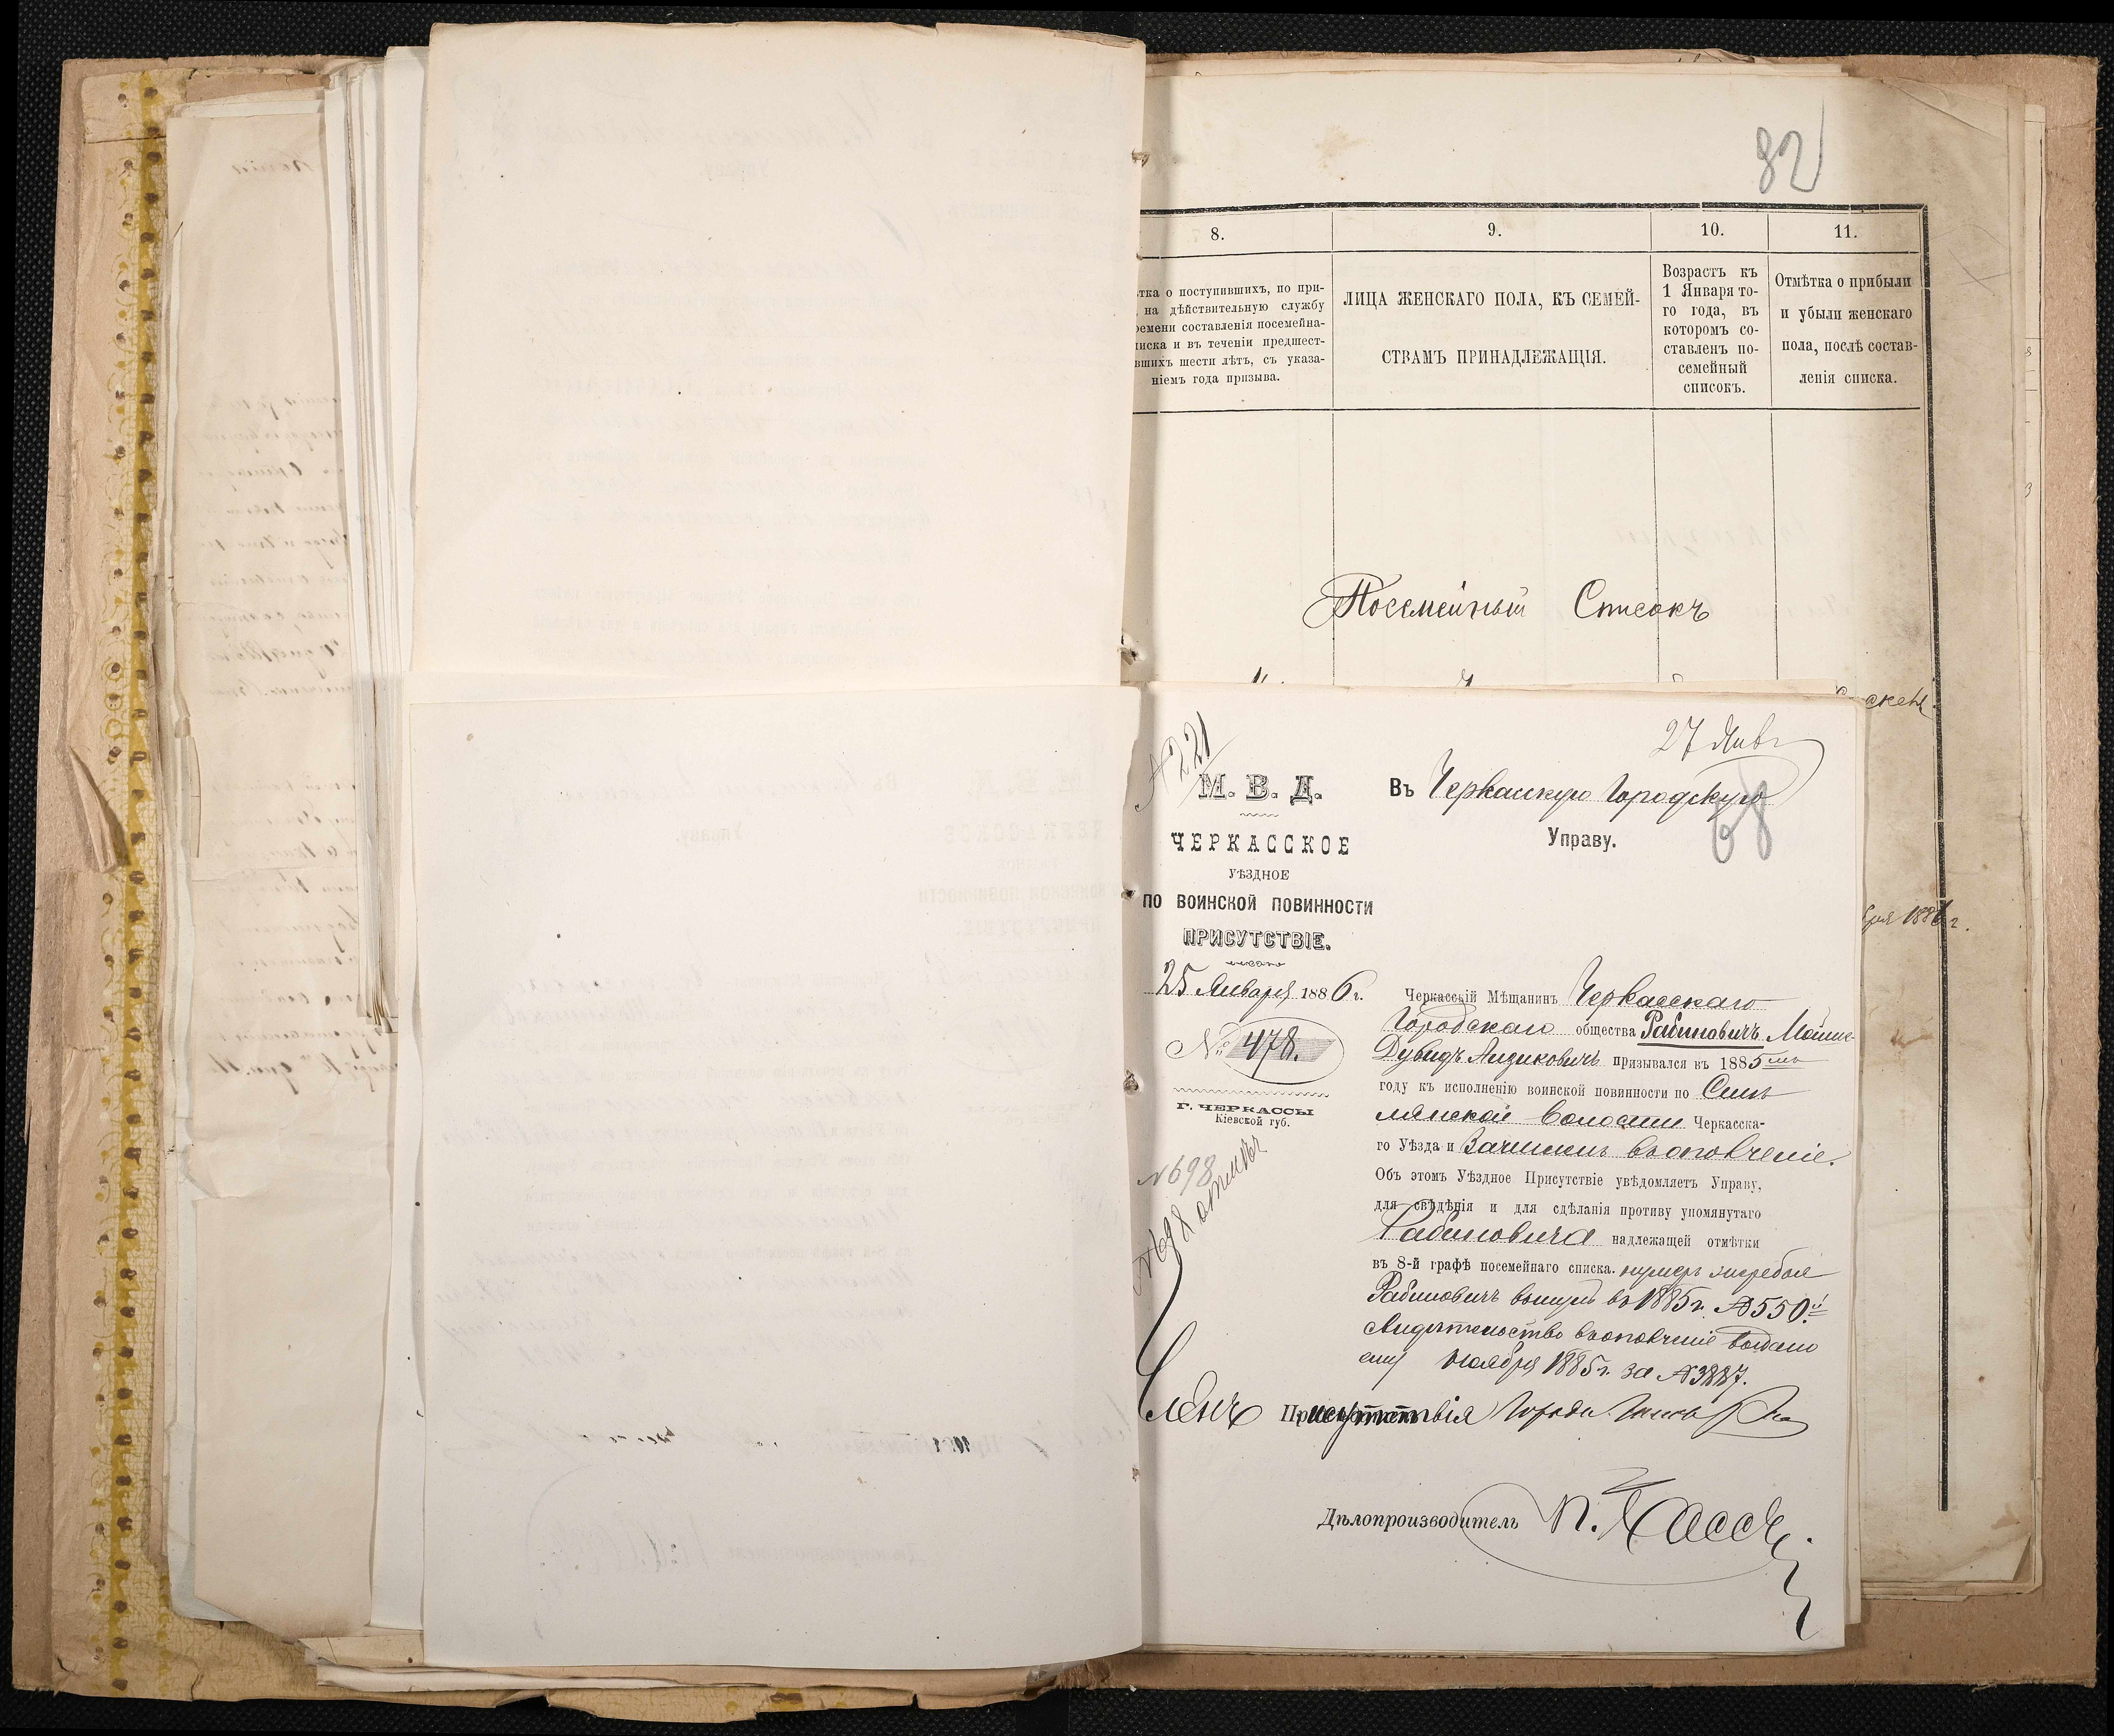 82
8.
9.
10.
11.
тка о поступившихъ, по при-
на дѣйствительную службу
ремени составленія посемейна-
писка и въ теченіи предшест-
вшихъ шести лѣтъ, съ указа-
ніемъ года призыва.
ЛИЦА ЖЕНСКАГО ПОЛА, КЪ СЕМЕЙ-
СТВАМЪ ПРИНАДЛЕЖАЩІЯ.
Возрастъ къ
1 Января то-
го года, въ
которомъ со-
ставленъ по-
семейный
списокъ.
Отмѣтка о прибыли
и убыли женскаго
пола, послѣ состав-
ленія списка.
Посемейный Списокъ
бря 1881 г.
№ 221
27 Янв
М. В. Д.
ЧЕРКАССКОЕ
УѢЗДНОЕ
ПО ВОИНСКОЙ ПОВИННОСТИ
ПРИСУТСТВІЕ.
25 Января 1886 г.
№ 478.
Г. ЧЕРКАССЫ
Кіевской губ.
№ 698
№ 698
Въ Черкасскую Городскую
68
Управу.
Черкасскій Мѣщанинъ Черкасскаго
Городскаго общества Рабиновичъ Мошко-
Дувидъ Айзиковичъ призывался въ 1885 мъ
году къ исполненію воинской повинности по Смѣ
лянской волости Черкасска-
го Уѣзда и Зачисленъ въ ополченіе.
Объ этомъ Уѣздное Присутствіе увѣдомляетъ Управу,
для свѣдѣнія и для сдѣланія противу упомянутаго
Рабиновича надлежащей отмѣтки
въ 8-й графѣ посемейнаго списка. нумеръ жеребья
Рабиновичъ вынулъ въ 1885 г. № 550й
Свидѣтельство въ ополченіе выдано
ему Ноября 1885 г. за № 3887.
Членъ Присутствія
Дѣлопроизводитель П.